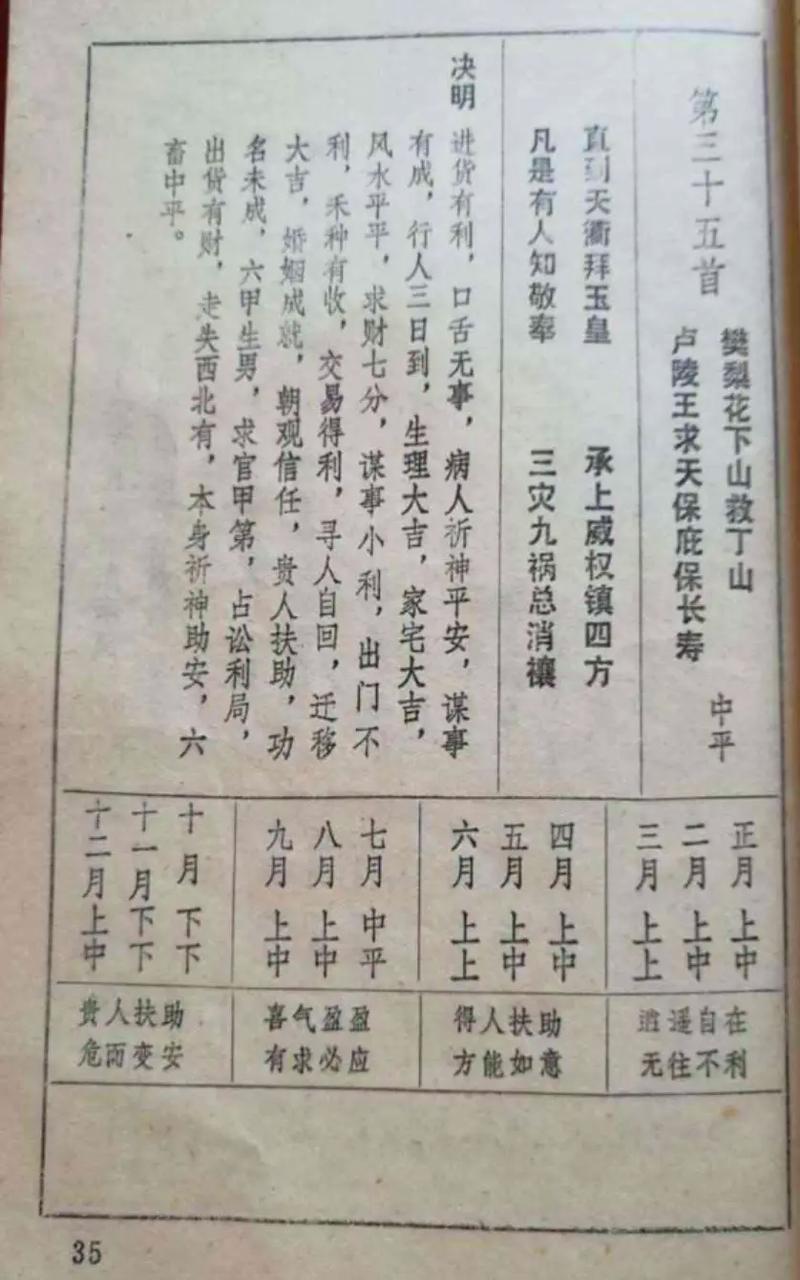 第三十五首
樊梨花下山救丁山
卢陵王求天保庇保长寿
中平
直到天衢拜玉皇
承上威权镇四方
凡是有人知敬奉
三灾九祸总消禳
决明
进货有利，口舌无事，病人祈神平安，谋事
有成，行人三日到，生理大吉，家宅大吉，
风水平平，求财七分，谋事小利，出门不
利，禾种有收，交易得利，寻人自回，迁移
大吉，婚姻成就，朝观信任，贵人扶助，功
名未成，六甲生男，求官甲第，占讼利局，
出货有财，走失西北有，本身祈神助安，六
畜中平。
正月上中
二月上中
三月上上
四月上中
五月上中
六月上上
七月中平
八月上中
九月上中
十月下下
十一月下下
十二月上中
逍遥自在
无往不利
得人扶助
方能如意
喜气盈盈
有求必应
贵人扶助
危而变安
35